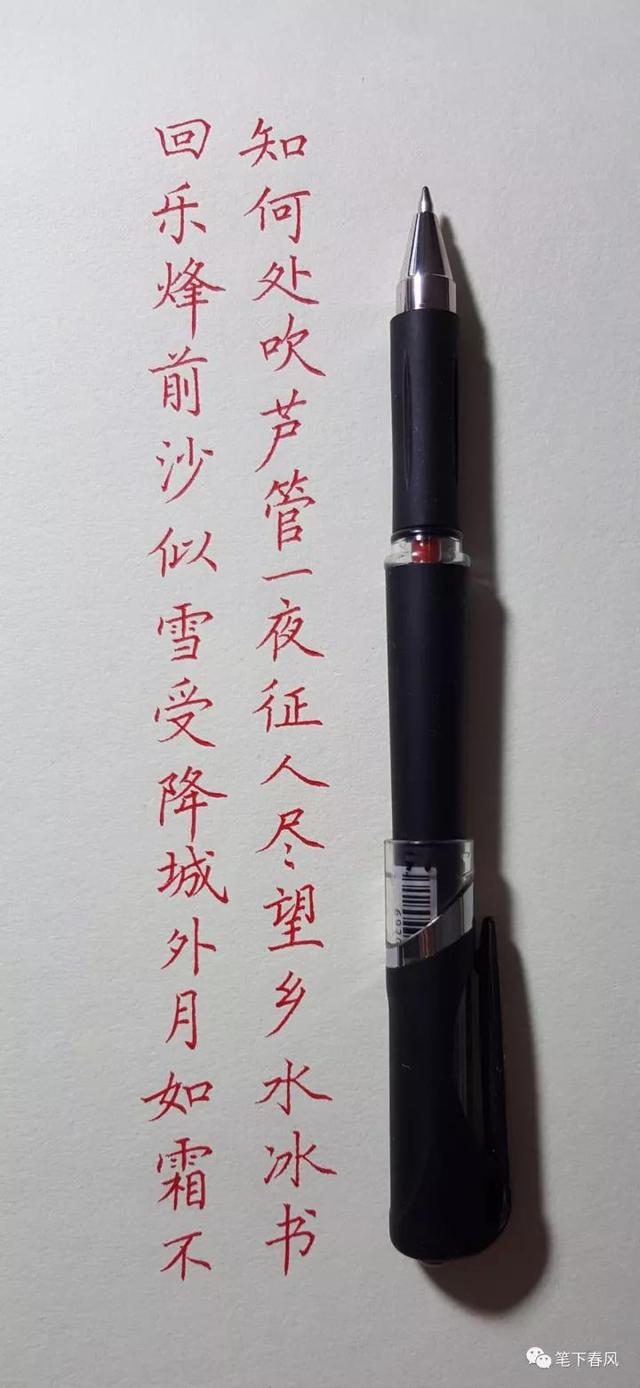 回乐烽前沙似雪受降城外月如霜不
知何处吹芦管一夜征人尽望乡水冰书
笔下春风